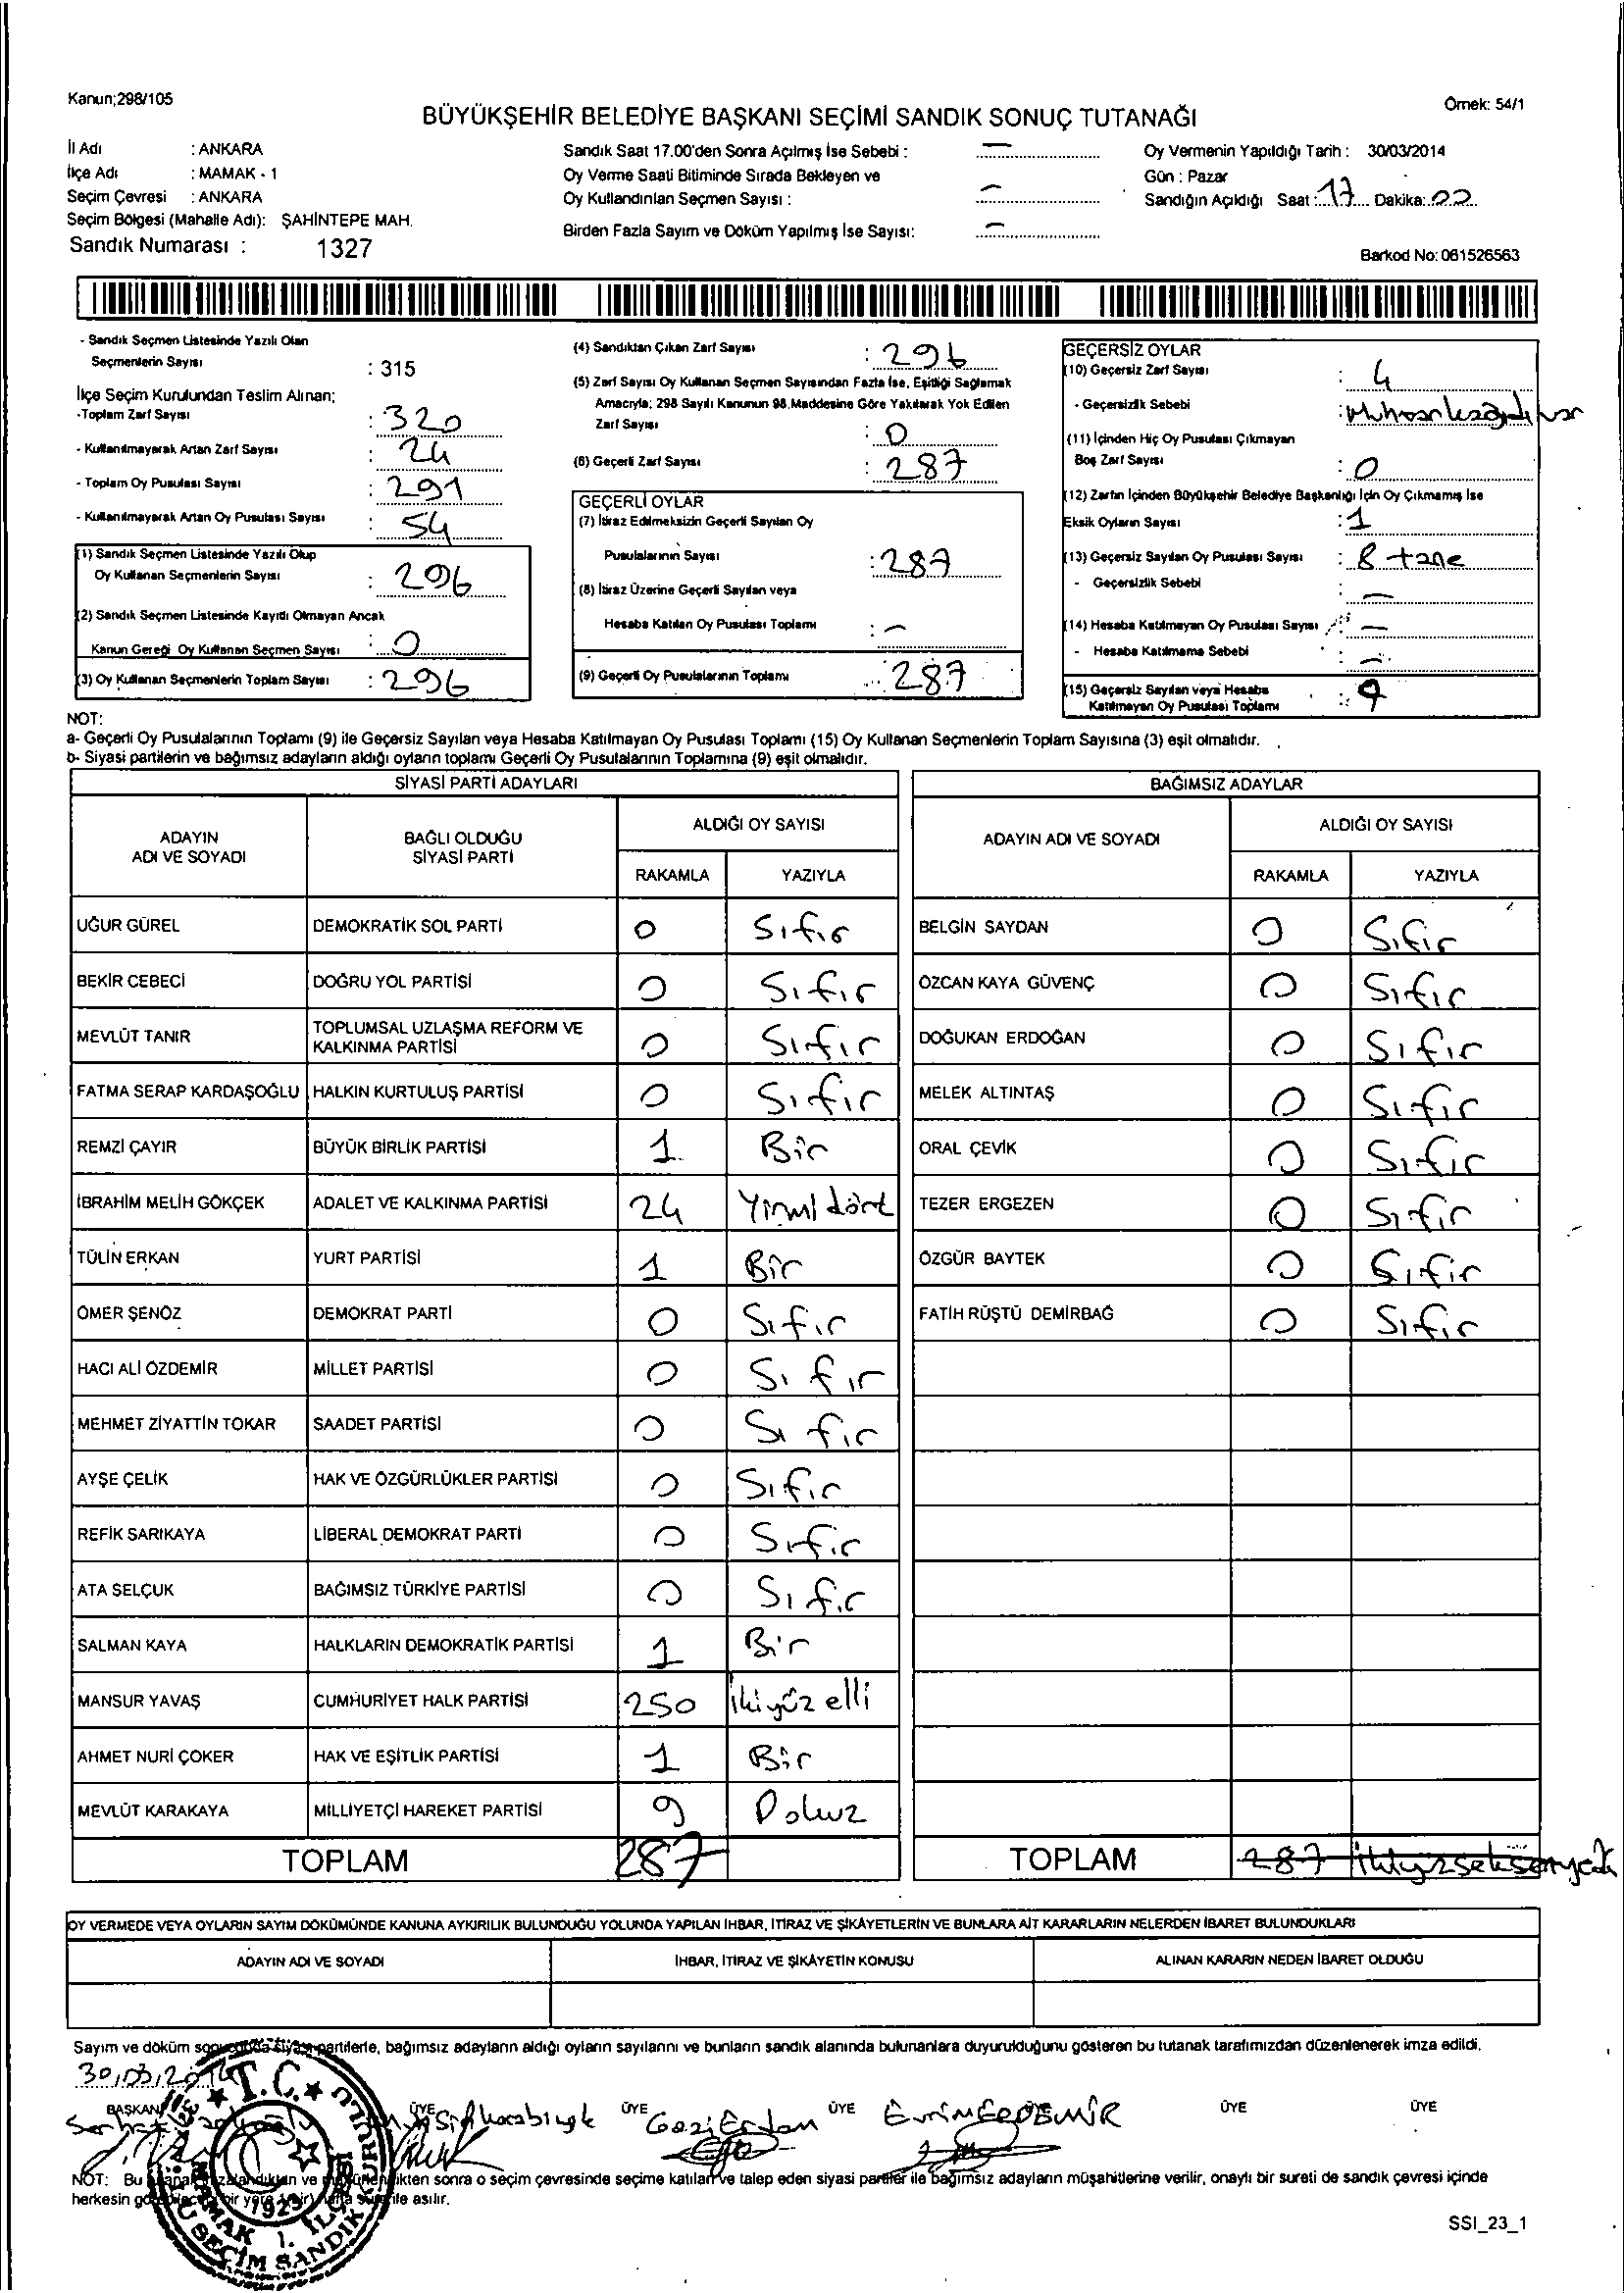 Kanun;298/105
Örnek: 54/1
BÜYÜKŞEHİR BELEDİYE BAŞKANI SEÇİMİ SANDIK SONUÇ TUTANAĞI
İl Adı : ANKARA
İlçe Adı : MAMAK - 1
Seçim Çevresi : ANKARA
Seçim Bölgesi (Mahalle Adı): ŞAHİNTEPE MAH.
Sandık Numarası : 1327
Sandık Saat 17.00'den Sonra Açılmış İse Sebebi : —
Oy Verme Saati Bitiminde Sırada Bekleyen ve
Oy Kullandırılan Seçmen Sayısı : —
Birden Fazla Sayım ve Döküm Yapılmış İse Sayısı: —
Oy Vermenin Yapıldığı Tarih : 30/03/2014
Gün : Pazar
Sandığın Açıldığı Saat: 17 Dakika: 02
Barkod No: 061526563
- Sandık Seçmen Listesinde Yazılı Olan
Seçmenlerin Sayısı : 315
İlçe Seçim Kurulundan Teslim Alınan;
-Toplam Zarf Sayısı : 320
- Kullanılmayarak Artan Zarf Sayısı : 24
- Toplam Oy Pusulası Sayısı : 291
- Kullanılmayarak Artan Oy Pusulası Sayısı : 54
(1) Sandık Seçmen Listesinde Yazılı Olup
Oy Kullanan Seçmenlerin Sayısı : 296
(2) Sandık Seçmen Listesinde Kayıtlı Olmayan Ancak
Kanun Gereği Oy Kullanan Seçmen Sayısı : 0
(3) Oy Kullanan Seçmenlerin Toplam Sayısı : 296
(4) Sandıktan Çıkan Zarf Sayısı : 296
(5) Zarf Sayısı Oy Kullanan Seçmen Sayısından Fazla İse, Eşitliği Sağlamak
Amacıyla; 298 Sayılı Kanunun 98.Maddesine Göre Yakılarak Yok Edilen
Zarf Sayısı : 0
(6) Geçerli Zarf Sayısı : 287
GEÇERLİ OYLAR
(7) İtiraz Edilmeksizin Geçerli Sayılan Oy
Pusulalarının Sayısı : 287
(8) İtiraz Üzerine Geçerli Sayılan veya
Hesaba Katılan Oy Pusulası Toplamı : —
(9) Geçerli Oy Pusulalarının Toplamı : 287
GEÇERSİZ OYLAR
(10) Geçersiz Zarf Sayısı : 4
- Geçersizlik Sebebi :
(11) İçinden Hiç Oy Pusulası Çıkmayan
Boş Zarf Sayısı : 0
(12) Zarfın İçinden Büyükşehir Belediye Başkanlığı İçin Oy Çıkmamış İse
Eksik Oyların Sayısı : 1
(13) Geçersiz Sayılan Oy Pusulası Sayısı : 8 tane
- Geçersizlik Sebebi : —
(14) Hesaba Katılmayan Oy Pusulası Sayısı : —
- Hesaba Katılmama Sebebi : —
(15) Geçersiz Sayılan veya Hesaba
Katılmayan Oy Pusulası Toplamı : 9
NOT:
a- Geçerli Oy Pusulalarının Toplamı (9) ile Geçersiz Sayılan veya Hesaba Katılmayan Oy Pusulası Toplamı (15) Oy Kullanan Seçmenlerin Toplam Sayısına (3) eşit olmalıdır.
b- Siyasi partilerin ve bağımsız adayların aldığı oyların toplamı Geçerli Oy Pusulalarının Toplamına (9) eşit olmalıdır.
SİYASİ PARTİ ADAYLARI
BAĞIMSIZ ADAYLAR
ADAYIN ADI VE SOYADI BAĞLI OLDUĞU SİYASİ PARTİ ALDIĞI OY SAYISI
ADAYIN ADI VE SOYADI ALDIĞI OY SAYISI
RAKAMLA YAZIYLA RAKAMLA YAZIYLA
UĞUR GÜREL DEMOKRATİK SOL PARTİ 0 Sıfır BELGİN SAYDAN 0 Sıfır
BEKİR CEBECİ DOĞRU YOL PARTİSİ 0 Sıfır ÖZCAN KAYA GÜVENÇ 0 Sıfır
MEVLÜT TANIR TOPLUMSAL UZLAŞMA REFORM VE KALKINMA PARTİSİ 0 Sıfır DOĞUKAN ERDOĞAN 0 Sıfır
FATMA SERAP KARDAŞOĞLU HALKIN KURTULUŞ PARTİSİ 0 Sıfır MELEK ALTINTAŞ 0 Sıfır
REMZİ ÇAYIR BÜYÜK BİRLİK PARTİSİ 1 Bir ORAL ÇEVİK 0 Sıfır
İBRAHİM MELİH GÖKÇEK ADALET VE KALKINMA PARTİSİ 24 Yirmi dört TEZER ERGEZEN 0 Sıfır
TÜLİN ERKAN YURT PARTİSİ 1 Bir ÖZGÜR BAYTEK 0 Sıfır
ÖMER ŞENÖZ DEMOKRAT PARTİ 0 Sıfır FATİH RÜŞTÜ DEMİRBAĞ 0 Sıfır
HACI ALİ ÖZDEMİR MİLLET PARTİSİ 0 Sıfır
MEHMET ZİYATTİN TOKAR SAADET PARTİSİ 0 Sıfır
AYŞE ÇELİK HAK VE ÖZGÜRLÜKLER PARTİSİ 0 Sıfır
REFİK SARIKAYA LİBERAL DEMOKRAT PARTİ 0 Sıfır
ATA SELÇUK BAĞIMSIZ TÜRKİYE PARTİSİ 0 Sıfır
SALMAN KAYA HALKLARIN DEMOKRATİK PARTİSİ 1 Bir
MANSUR YAVAŞ CUMHURİYET HALK PARTİSİ 250 İkiyüz elli
AHMET NURİ ÇOKER HAK VE EŞİTLİK PARTİSİ 1 Bir
MEVLÜT KARAKAYA MİLLİYETÇİ HAREKET PARTİSİ 9 Dokuz
TOPLAM 287 TOPLAM 287 ikiyüzseksenyedi
OY VERMEDE VEYA OYLARIN SAYIM DÖKÜMÜNDE KANUNA AYKIRILIK BULUNDUĞU YOLUNDA YAPILAN İHBAR, İTİRAZ VE ŞİKÂYETLERİN VE BUNLARA AİT KARARLARIN NELERDEN İBARET BULUNDUKLARI
ADAYIN ADI VE SOYADI İHBAR, İTİRAZ VE ŞİKÂYETİN KONUSU ALINAN KARARIN NEDEN İBARET OLDUĞU
Sayım ve döküm sonucunda siyasi partilerle, bağımsız adayların aldığı oyların sayılarını ve bunların sandık alanında bulunanlara duyurulduğunu gösteren bu tutanak tarafımızdan düzenlenerek imza edildi.
30,03,2014
BAŞKAN ÜYE ÜYE ÜYE ÜYE ÜYE
Gezi Erdan Evrim ERDEMİR
T.C. 1923 MAMAK 1. İLÇE SEÇİM SANDIK KURULU
NOT: Bu ve sonra o seçim çevresinde seçime katılan ve talep eden siyasi partiler ile bağımsız adayların müşahitlerine verilir, onaylı bir sureti de sandık çevresi içinde
herkesin bir yere asılır.
SSI_23_1